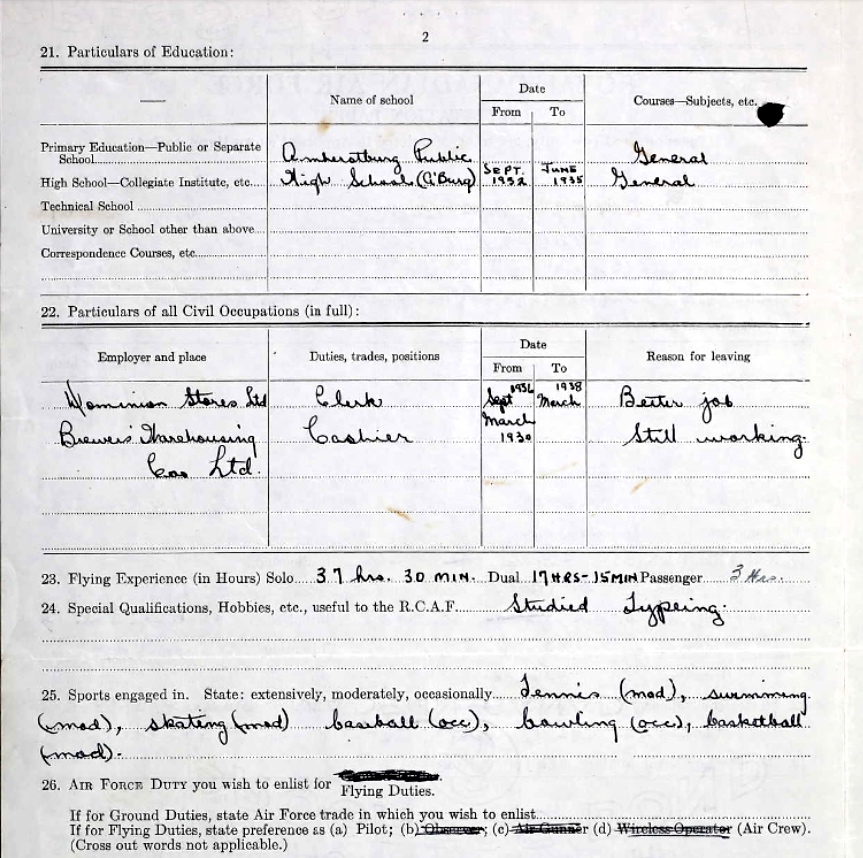 2
21. Particulars of Education:
Name of school Date Courses—Subjects, etc.
From To
Primary Education—Public or Separate
School Amherstburg Public General
High School—Collegiate Institute, etc. High School (A'Burg) SEPT. 1932 JUNE 1935 General
Technical School
University or School other than above
Correspondence Courses, etc.
22. Particulars of all Civil Occupations (in full):
Employer and place Duties, trades, positions Date Reason for leaving
From To
Dominion Stores Ltd Clerk Sept 1936 March 1938 Better job
Brewers' Warehousing Cashier March Still working.
Coo Ltd.
23. Flying Experience (in Hours) Solo 37 hrs. 30 MIN. Dual 17 HRS-15 MIN Passenger 3 Hrs.
24. Special Qualifications, Hobbies, etc., useful to the R.C.A.F. Studied Typeing.
25. Sports engaged in. State: extensively, moderately, occasionally Tennis (mod), swimming
(mod), skating (mod) baseball (occ), bowling (occ), basketball
(mod).
26. AIR FORCE DUTY you wish to enlist for
Flying Duties.
If for Ground Duties, state Air Force trade in which you wish to enlist
If for Flying Duties, state preference as (a) Pilot; (b) Observer; (c) Air Gunner (d) Wireless Operator (Air Crew).
(Cross out words not applicable.)